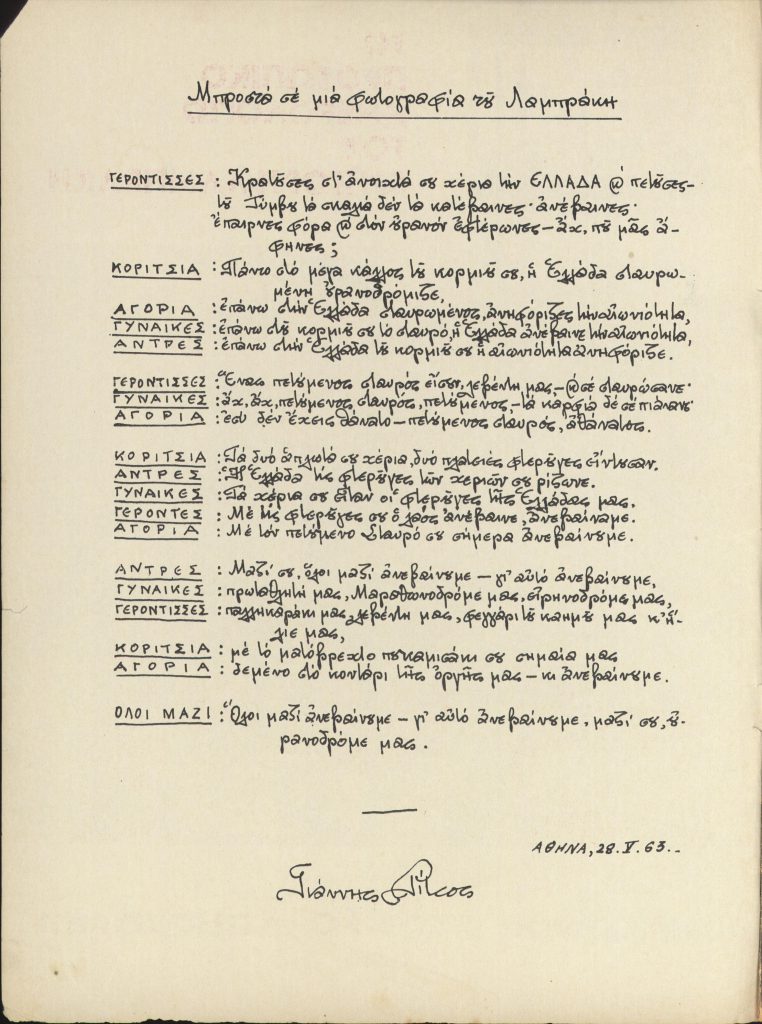 Μπροστά σέ μιά φωτογραφία τοῦ Λαμπράκη
ΓΕΡΟΝΤΙΣΣΕΣ : Κρατοῦσες στ' ἀνοιχτά σου χέρια τήν ΕΛΛΑΔΑ καί πετοῦσες–
τοῦ Τύμβου τά σκαλιά δέν τά κατέβαινες· ἀνέβαινες·
ἔπαιρνες φόρα καί στόν οὐρανόν ἐφτέρωνες – ἄχ, ποῦ μᾶς ἄ-
φηνες;
ΚΟΡΙΤΣΙΑ : Πάνω στό μέγα κάλλος τοῦ κορμιοῦ σου, ἡ Ἑλλάδα σταυρω-
μένη οὐρανοδρόμιζε,
ΑΓΟΡΙΑ : ἐπάνω στήν Ἑλλάδα σταυρωμένος, ἀνηφόριζες τήν αἰωνιότητα,
ΓΥΝΑΙΚΕΣ : ἐπάνω στοῦ κορμιοῦ σου τό σταυρό, ἡ Ἑλλάδα ἀνέβαινε τήν αἰωνιότητα,
ΑΝΤΡΕΣ : ἐπάνω στήν Ἑλλάδα τοῦ κορμιοῦ σου ἡ αἰωνιότητα ἀνηφόριζε.
ΓΕΡΟΝΤΙΣΣΕΣ : Ἕνας πετούμενος σταυρός εἶσουν, λεβέντη μας, – καί σέ σταυρώσανε·
ΓΥΝΑΙΚΕΣ : ἄχ, ἄχ, πετούμενος σταυρός, πετούμενος, – τά καρφιά δέ σέ πιάναν·
ΑΓΟΡΙΑ : ἐσύ δέν ἔχεις θάνατο – πετούμενος σταυρός, ἀθάνατος.
ΚΟΡΙΤΣΙΑ : Τά δυό ἁπλωτά σου χέρια, δυό πλατειές φτεροῦγες εἴντουσαν.
ΑΝΤΡΕΣ : Ἡ Ἑλλάδα τίς φτεροῦγες τῶν χεριῶν σου ρίζωνε.
ΓΥΝΑΙΚΕΣ : Τά χέρια σου εἶταν οἱ φτεροῦγες τῆς Ἑλλάδας μας.
ΓΕΡΟΝΤΕΣ : Μέ τίς φτεροῦγες σου ὁ λαός ἀνέβαινε, ἀνεβαίναμε.
ΑΓΟΡΙΑ : Μέ τόν πετούμενο Σταυρό σου σήμερα ἀνεβαίνουμε.
ΑΝΤΡΕΣ : Μαζί σου, ὅλοι μαζί ἀνεβαίνουμε – γι' αὐτό ἀνεβαίνουμε,
ΓΥΝΑΙΚΕΣ : πρωταθλητή μας, Μαραθωνοδρόμε μας, εἰρηνοδρόμε μας,
ΓΕΡΟΝΤΙΣΣΕΣ : παλληκαράκι μας, λεβέντη μας, φεγγάρι τοῦ καημοῦ μας κ' ἥ-
λιε μας,
ΚΟΡΙΤΣΙΑ : μέ τό ματόβρεχτο πουκαμισάκι σου σημαία μας
ΑΓΟΡΙΑ : δεμένο στό κοντάρι τῆς ὀργῆς μας – κι ἀνεβαίνουμε.
ΟΛΟΙ ΜΑΖΙ : Ὅλοι μαζί ἀνεβαίνουμε – γι' αὐτό ἀνεβαίνουμε, μαζί σου, οὐ-
ρανοδρόμε μας.
ΑΘΗΝΑ, 28. V. 63.–
Γιάννης Ρίτσος